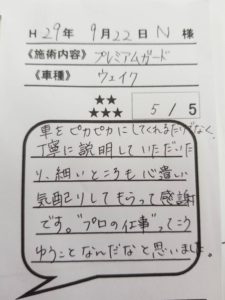 H 29年 9月22日 N 様
《施術内容》プレミアムガード
《車種》 ウェイク
★★
★★★
5 / 5
車をピカピカにしてくれるだけでなく、
丁寧に説明していただいた
り、細いところも心遣い
気配りしてもらって感謝
です。"プロの仕事"ってこう
ゆうことなんだなと思いました。